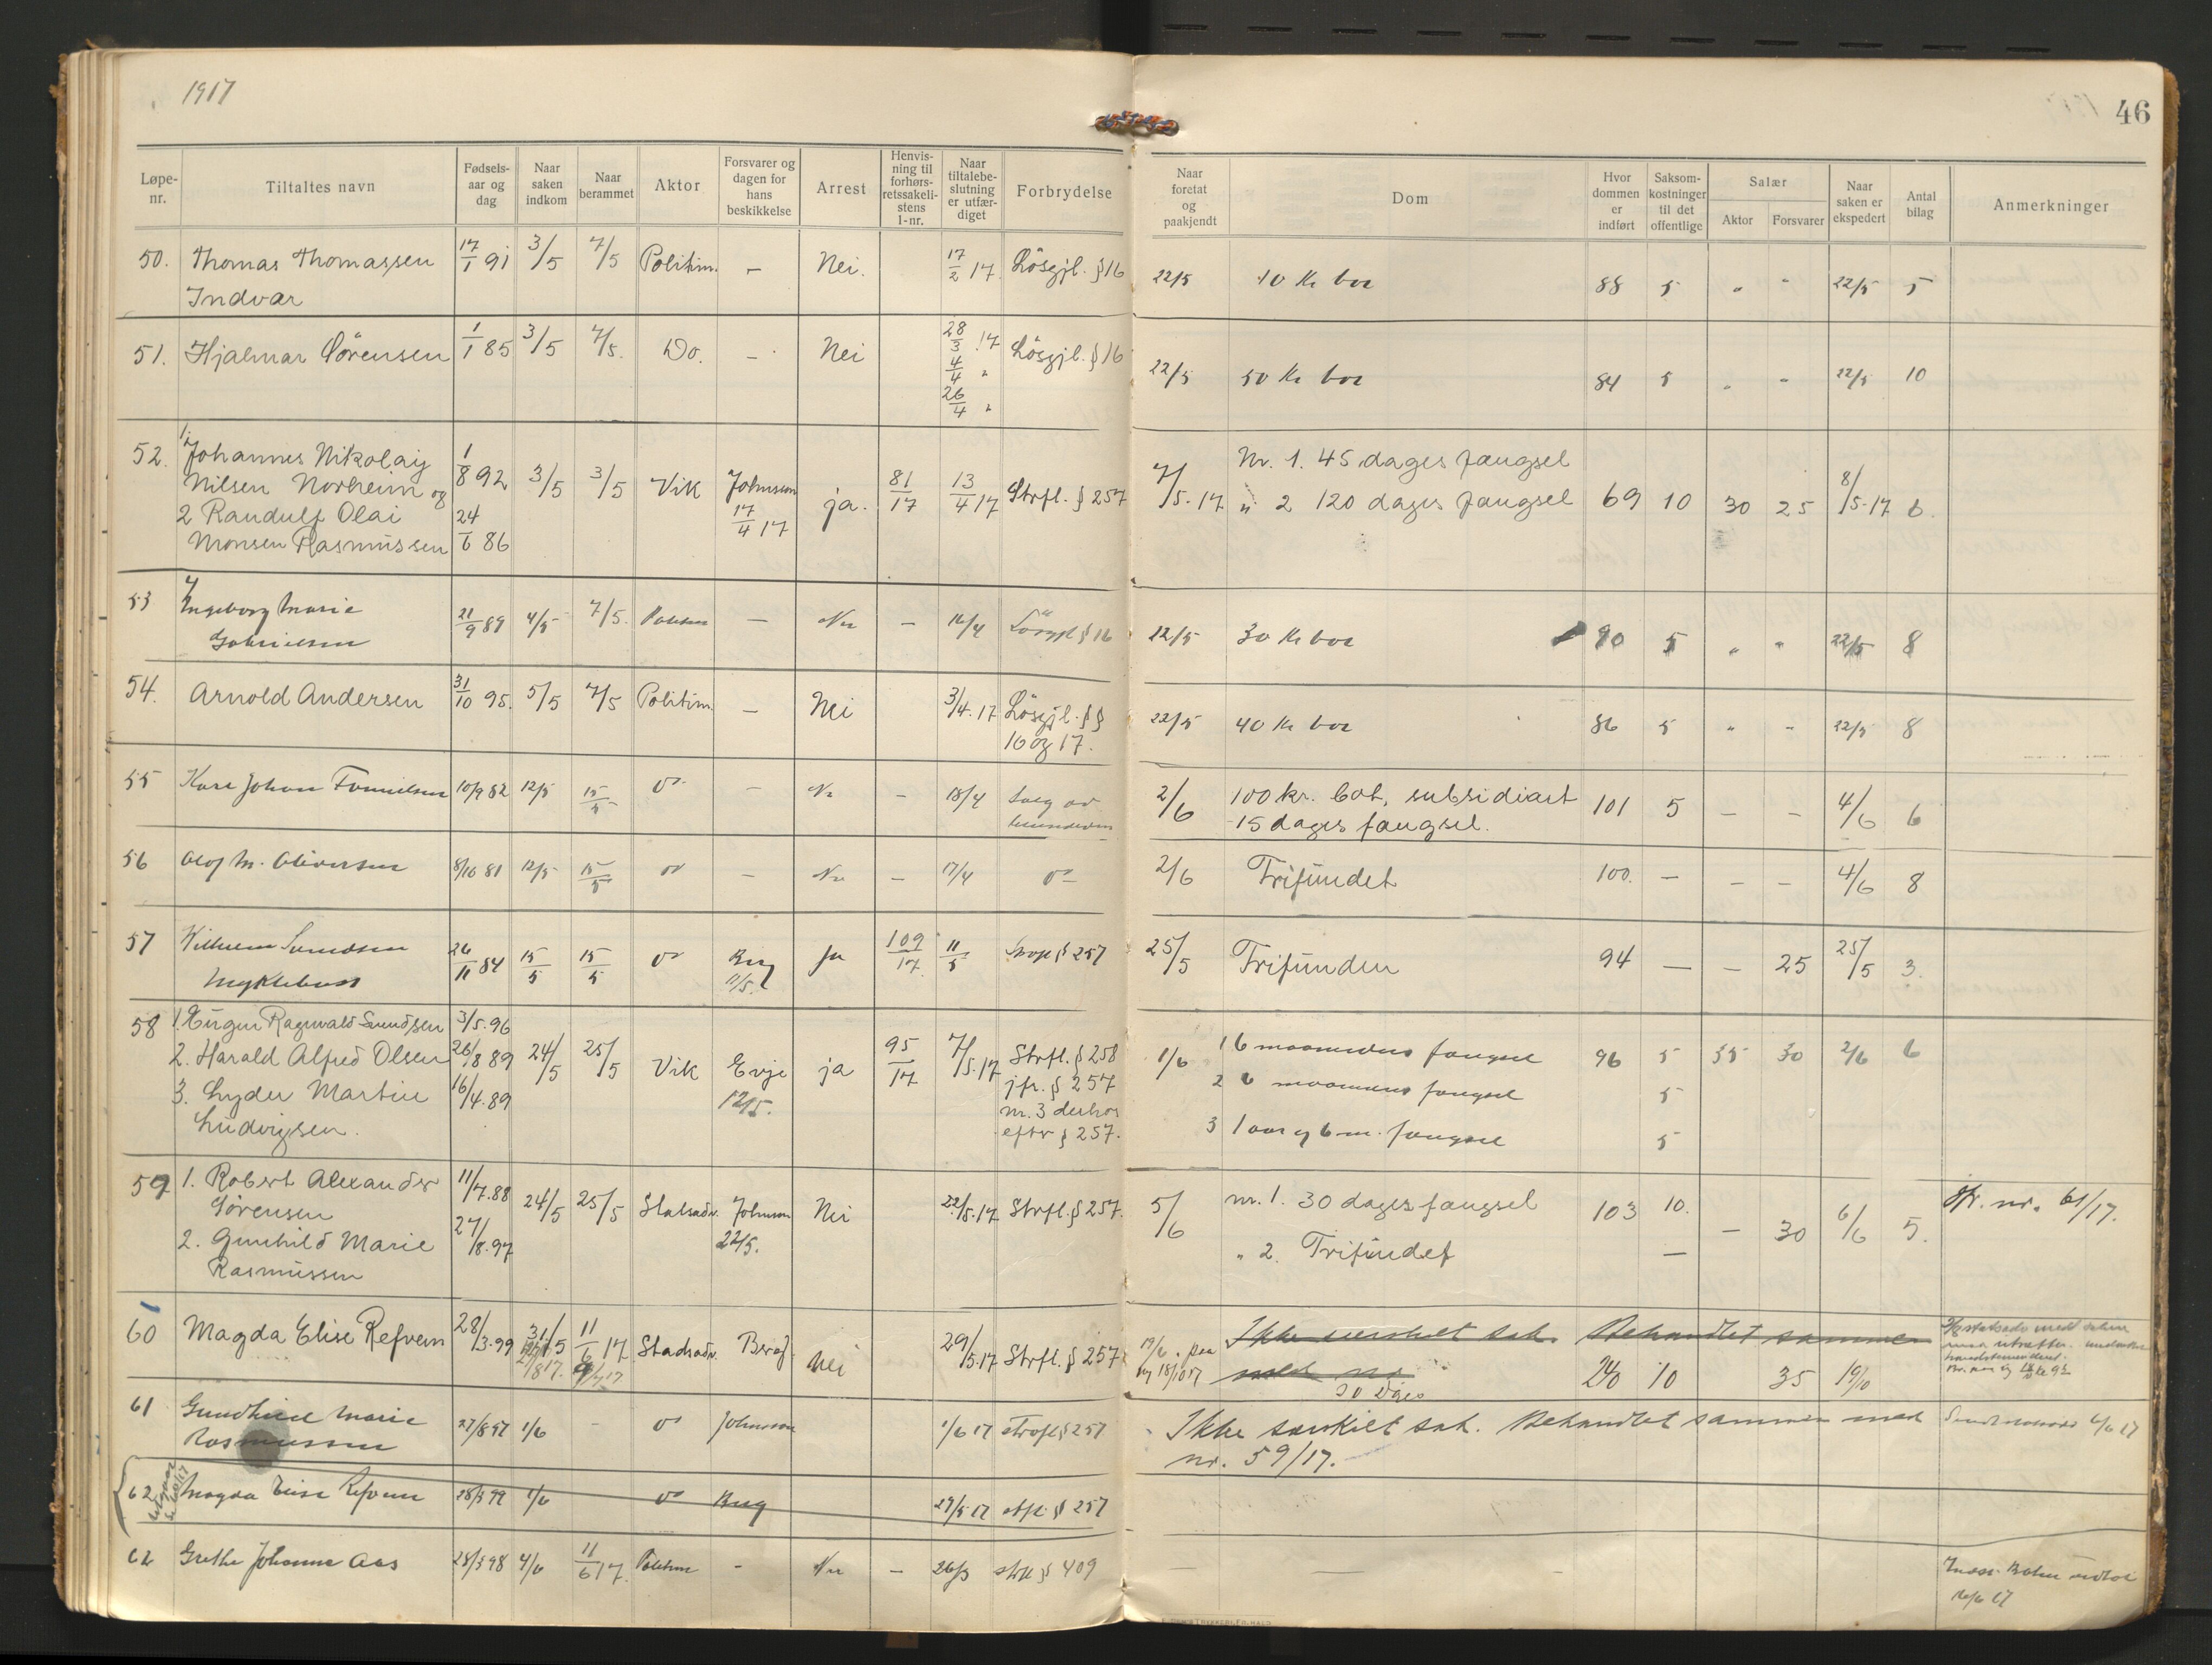 1917
46
Løpe-nr.
Tiltaltes navn
Fødsels-aar og dag
Naar saken indkom
Naar berammet
Aktor
Forsvarer og dagen for hans beskikkelse
Arrest
Henvis-ning til forhørs-retssakeli-stens l-nr.
Naar tiltalebe-slutning er utfær-diget
Forbrydelse
Naar foretat og paakjendt
Dom
Hvor dommen er indført
Saksom-kostninger til det offentlige
Salær
Aktor
Forsvarer
Naar saken er ekspedert
Antal bilag
Anmerkninger
50. Thomas Thomassen 17/1 91 3/5 7/5 Politim. – Nei. 17/2 17 Løsgjl. § 16 22/5 10 Kr bot 88 5 " " 22/5 5
Indvær
51. Hjalmar Sörensen 1/1 85 3/5 7/5. Do. – Nei 28/3 17 Løsgjl. § 16 22/5 50 Kr bot 84 5 " " 22/5 10
4/4 "
26/4 "
52. 1. Johannes Nikolay 1/8 92 3/5 3/5 Vik Johnson 17/4 17 ja. 81/17 13/4 17 Strfl. § 257 7/5.17 Nr. 1. 45 dages fængsel
Nilsen Norheim og
2 Randulf Olai 24/6 86 " 2 120 dages fængsel 69 10 30 25 8/5.17 6.
Monsen Rasmussen
53 Ingeborg Marie 21/9 89 4/5 7/5. Politim – Nei – 16/4 Løsgjl § 16 22/5 30 Kr bot 90 5 " " 22/5 8
Gabrielsen
54. Arnold Andersen 31/10 95. 5/5 7/5 Politim. – Nei 3/4.17 Løsgjl. §§ 22/5 40 Kr bot 86 5 " " 22/5 8
16 og 17.
55 Karl Johan 10/9 82 12/5 15/5 Do – Nei – 18/4 Salg av 2/6 100 kr. bot, subsidiært 101 5 – – 4/6 6
15 dages fængsel.
56 Olaf M. Oliversen 8/10 81 12/5 15/5 do – Nei – 17/4 do 2/6 Frifundet 100. – – – 4/6 8
57 Vilhelm Svendsen 26/11 84 15/5 15/5 do Berg 11/5. Ja 109/17 11/5 Strfl § 257 25/5 Frifunden 94 – – 25 25/5 3.
Myklebust
58 1. Eugen Ragnvald Svendsen 3/5.96
2. Harald Alfred Olsen 26/8 89 24/5 25/5 Vik Evje 12/5. ja 95/17 7/5.17 Strfl. § 258 1/6 1 6 maaneders fængsel 96 5 35 30 2/6 6
3. Lyder Martin 16/4.89 jfr. § 257 2 6 maaneders fængsel 5
Ludvigsen. nr. 3 derhos
efter § 257. 3 1 aar og 6 m. fængsel 5
59 1. Robert Alexander 11/7.88 24/5 25/5 Statsadv. Johnson 22/5. Nei 22/5.17 Strfl. § 257. 5/6 nr. 1. 30 dages fængsel 103 10. – 30 6/6 5. jfr. nr. 61/17.
Sørensen
2. Gunhild Marie 27/8.97 " 2. Frifundet –
Rasmussen
60 Magda Elise Refvem 28/3.99 31/5 11/6 17 Statsadv. Berg. Nei 29/5.17 Strfl. § 257 Ikke særskilt sak. Behandlet sammen
og 18/10 17 med nr 30 dages 240 10 35 19/10
61 Gundhild Marie 27/8 97 1/6 – do Johnson 1/6 17 Strafl § 257 Ikke særskilt sak. Behandlet sammen med 4/6 17
Rasmussen nr. 59/17.
62 Magda Elise Refvem 28/3 99 1/6 do Berg 29/5 17 strfl. § 257
62 Grethe Johanne Aas 28/3 98 4/6 11/6 17. Politim – Nei – 26/3 strfl § 409 – – –
16/6 17